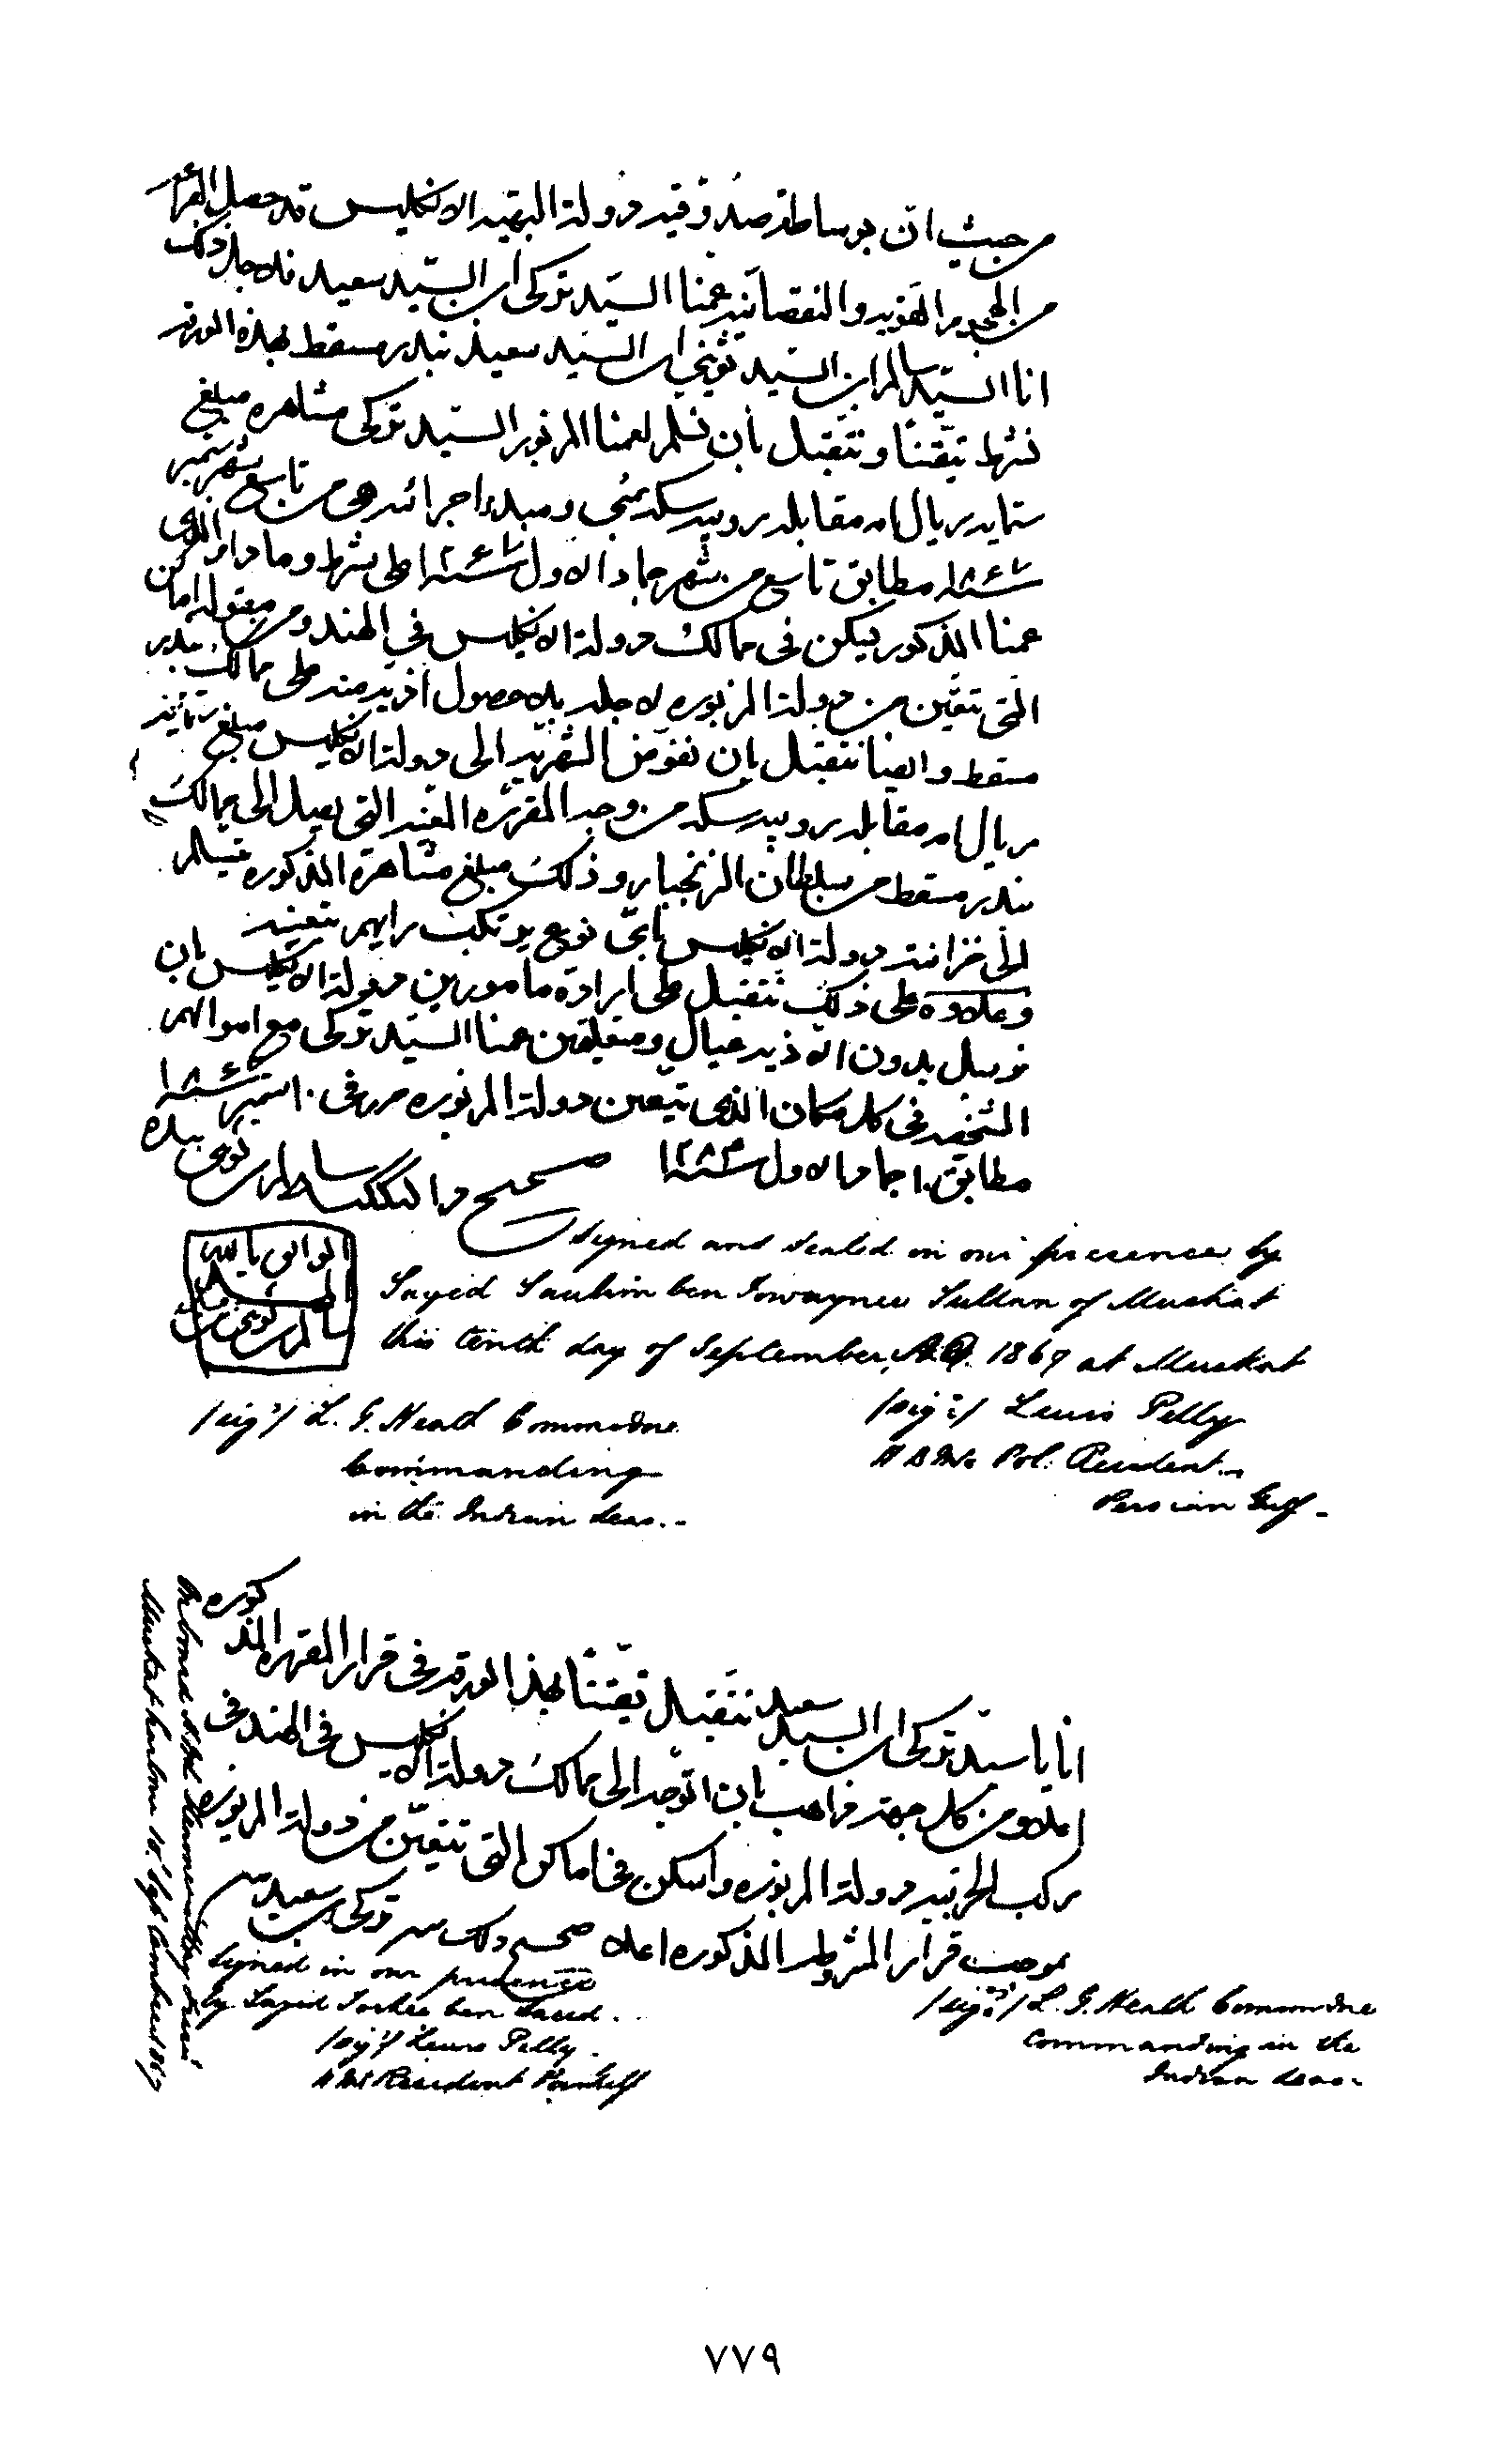 من حيث ان بوساطة صدوقيه دولة البهيه الانكليس قد حصل الفراغ
من الهجوم القويه والنقصانيه عمنا السيد تركي ابن السيد سعيد فلاجل ذلك
انا السيد سالم ابن السيد ثويني ابن السيد سعيد بندر مسقط بهذه الورقه
نشرط تيقنًا ونتقبل بأن نسلم لعمنا المزبور السيد تركي مشاهره مبلغ
ستمايه ريال ام مقابله روبيه سكه بمبي ومبدء اجرائه هي من تاسع شهر ستمبر
سنه ١٨٦٧ مطابق تاسع من شهر جماد الاول سنه ١٢٨٤ على شرط وما دام الذي
عمنا المذكور يسكن في ممالك دولة الانكليس في الهند ومن مقوله اماكن
التي تتعين من دولة المزبوره لاجله بلا حصول اذيته منه على ممالك بندر
مسقط وايضا نتقبل بان نفوض الشهريه الى دولة الانكليس مبلغ ستمائه
ريال ام مقابله روبيه سكه من وجه المقرره المعينه التي يصل الى ممالك
بندر مسقط من سلطان الزنجبار وذلك مبلغ مشاهرة المذكوره تسلم
الى خزانته دولة الانكليس بأي نوع يرتكب رايهم بتعينه
وعلاوه على ذلك نتقبل على ارادة مامورين دولة الانكليس بان
نوسل بدون الاذيه عيال ومتعلقين عمنا السيد تركي مع اموالهم
الشخصه في كل مكان الذي تتعين دولة المزبوره حرر في ١٠ ستمبر سنه ١٨٦٧
مطابق ١٠ جماد الاول سنه ١٢٨٤ صحيح ذالك سالم بن ثويني بيده
الواثق بالله
سالم بن ثويني
Signed and sealed in our presence by
Sayed Saulim ben Sowaynee Sultan of Muskat
this tenth day of September, A.D. 1867 at Muskat
/sigd/ L. G. Heath Commodore
Commanding
in the Indian Seas.-
/sigd/ Lewis Pelly
H B M's Pol: Resident
Persian Gulf -
انا يا سيد تركي ابن السيد سعيد نتقبل تيقنًا بهذا الورقه في قرار المقرره المذكوره
اعلاه ومن كل جهته نراهب بان اتوجه الى ممالك دولة الانكليس في الهند في
مركب الحربيه دولة المزبوره واسكن في اماكن التي تتعين من دولة المزبوره
بموجب قرار الشروط المذكوره اعلاه صحيح ذلك تركي بن سعيد
Signed in our presence
by Sayid Toorkee ben Saeed.
/sigd/ Lewis Pelly.
H M's Resident P Gulf
/sigd/ L. G. Heath Commodore
Commanding in the
Indian Seas.
On board
Muskat harbour 10. Sept
٧٧٩